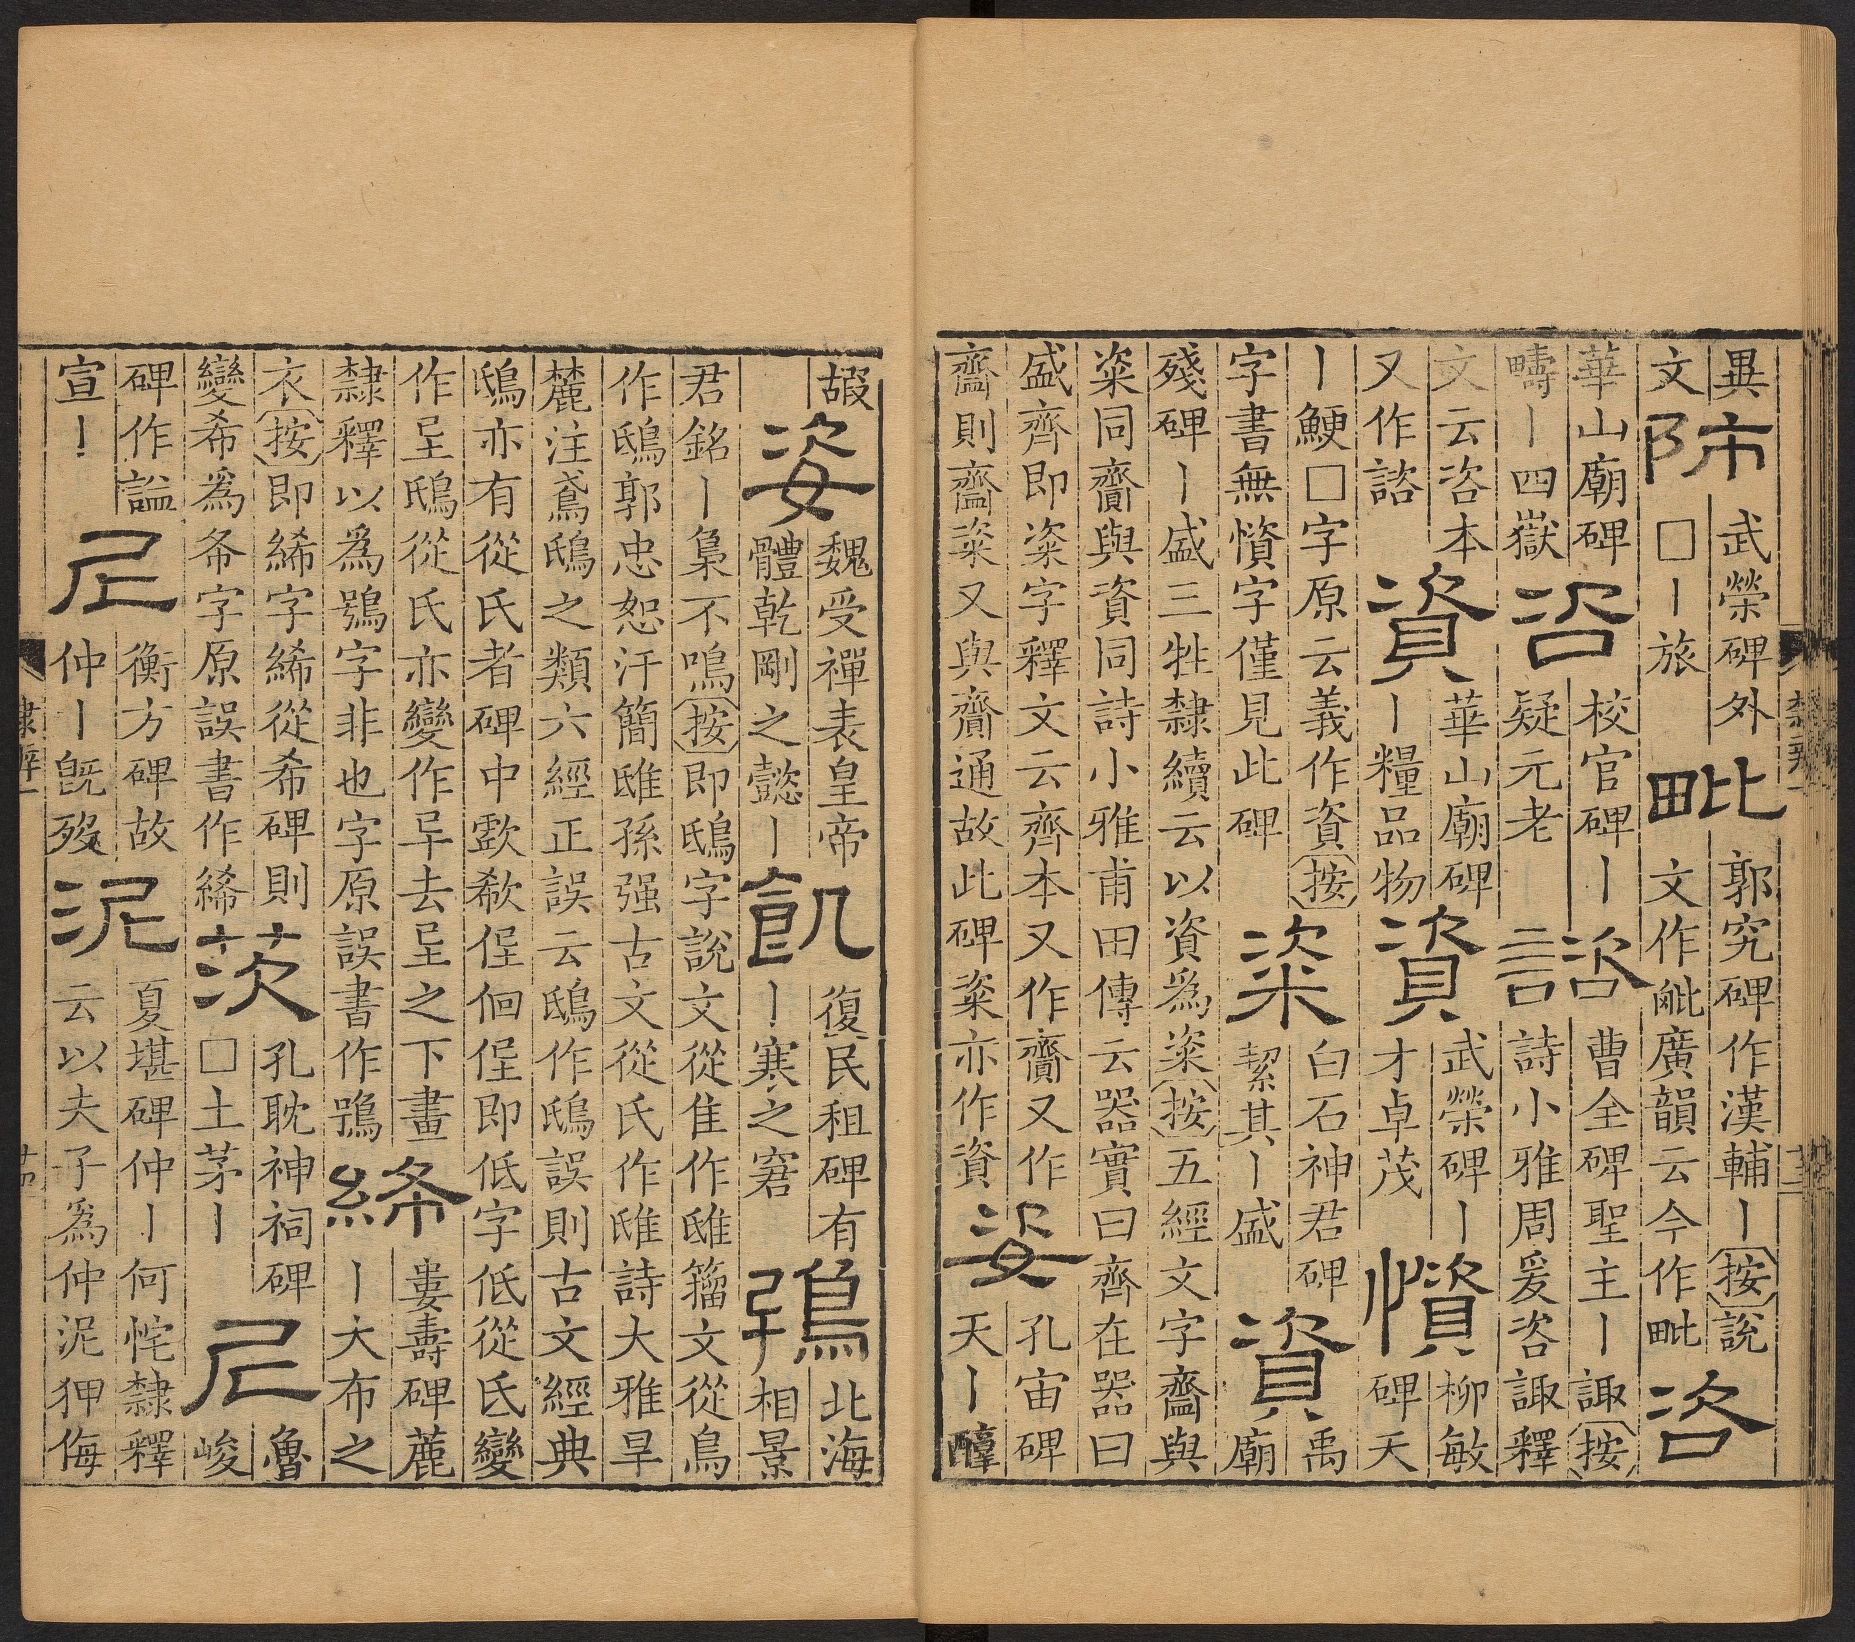 異
文
武榮碑外
□丨旅
毗
郭究碑作漢輔丨按說
文作毗廣韻云今作毗
咨
華山廟碑
疇丨四嶽
咨
校官碑丨
疑元老
諮
曹全碑聖主丨諏按
詩小雅周爰咨諏釋
文云咨本
又作諮
資
華山廟碑
丨糧品物
資
武榮碑丨
才卓茂
懫
柳敏
碑天
丨鯁□字原云義作資按
字書無懫字僅見此碑
粢
白石神君碑
絜其丨盛
資
禹
廟
殘碑丨盛三牲隸續云以資爲粢按五經文字齍與
粢同齎與資同詩小雅甫田傳云器實曰齊在器曰
盛齊即粢字釋文云齊本又作齎又作
齍則齍粢又與齎通故此碑粢亦作資
姿
孔宙碑
天丨醇
嘏
姿
魏受禪表皇帝
體乾剛之懿丨
飢
復民租碑有
丨寒之窘
北海
相景
君銘丨梟不鳴按即鴟字說文從隹作雎籀文從鳥
作鴟郭忠恕汗簡雎孫强古文從氏作雎詩大雅旱
麓注鳶鴟之類六經正誤云鴟作鴟誤則古文經典
鴟亦有從氏者碑中歍欷侱佪侱即低字低從氐變
作呈鴟從氏亦變作𫝀去呈之下畫
隸釋以爲鴞字非也字原誤書作鴞
絺
婁壽碑麤
丨大布之
衣按即絺字絺從希碑則
變希爲㣇字原誤書作絺
茨
孔耽神祠碑
□土茅丨
尼
魯
峻
碑作謚
宣丨
尼
衡方碑故
仲丨旣歿
泥
夏堪碑仲丨何恎隸釋
云以夫子爲仲泥狎侮